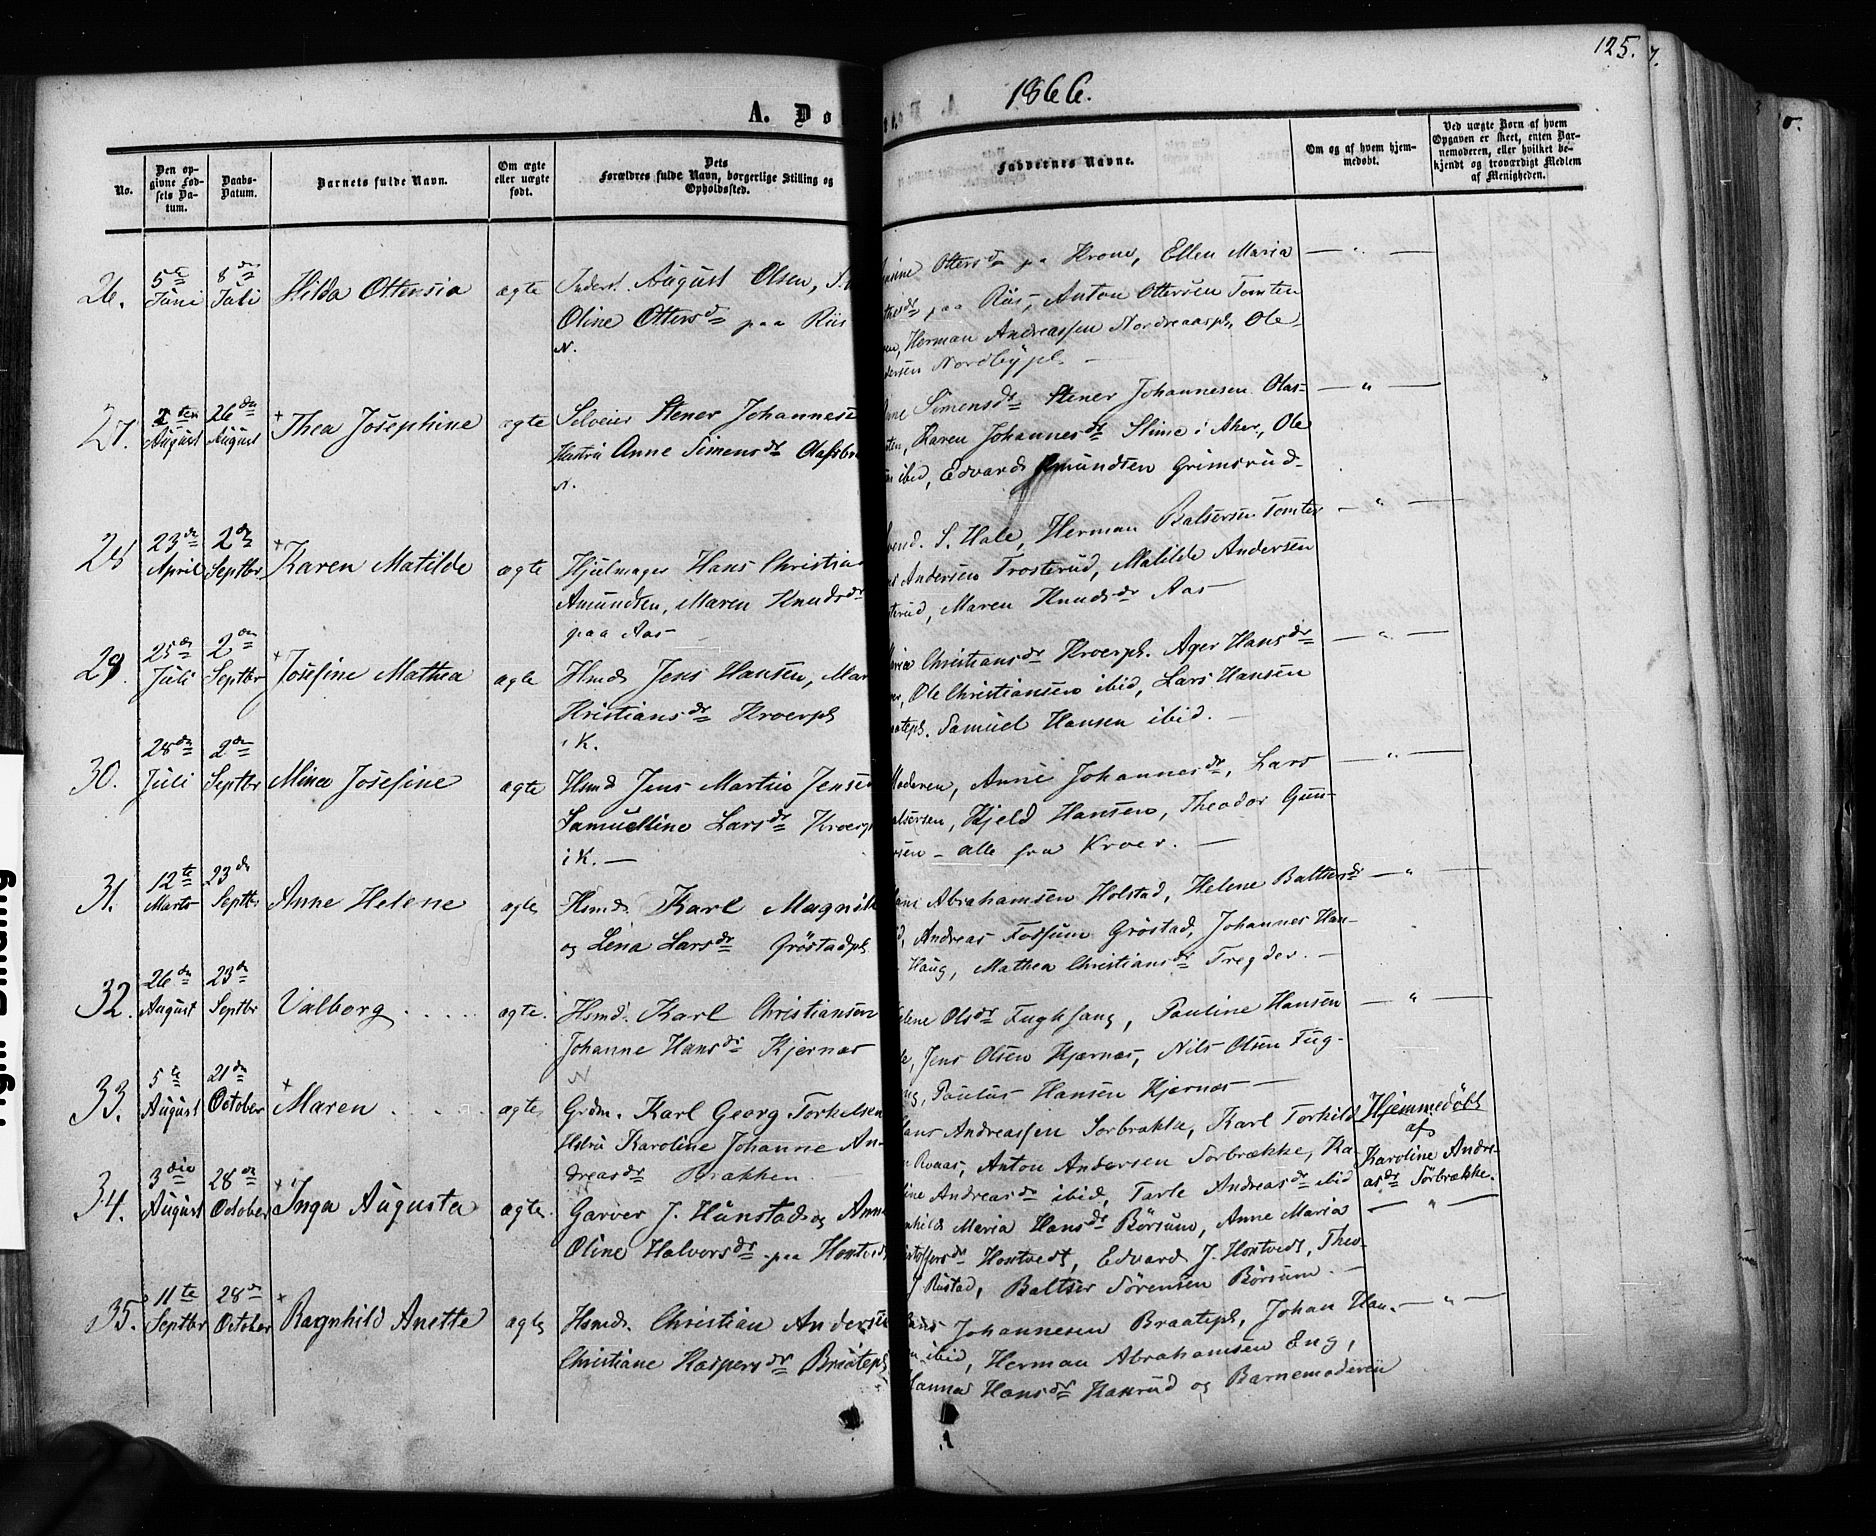 125.
1866.
A. Dø
No.
Den opgivne Fødsels Datum.
Daabs-Datum.
Barnets fulde Navn.
Om ægte eller uægte født.
Dets Forældres fulde Navn, borgerlige Stilling og Opholdssted.
Faddernes Navne.
Om og af hvem hjemmedøbt.
Ved uægte Børn af hvem Opgaven er skeet, enten Barnemoderen, eller hvilket bekjendt og troværdigt Medlem af Menigheden.
26. 5te Juni 8de Juli Hilda Ottersia ægte Inderst. August Olsen,
Oline Ottersdr paa Riis
N.
Ottersdr paa Krone, Ellen Maria
paa Riis, Anton Ottersen Tomten
Herman Andreassen Nordreaaspl, Ole
Nordbypl. —
27. 2den August 26de August + Thea Josephine ægte Selveier Stener Johannese
Hustru Anne Simensdr Olafsbr
N.
Simensdr Stener Johannesen Olas-
Karen Johannesdr Slime i Aker, Ole
ibid, Edvard Amundsen Grimsrud-
28 23de April 2de Septbr + Karen Matilde ægte Hjulmager Hans Christian
Amundsen, Maren Knudsdr
paa Aas —
S. Hole, Herman Baltsersen Tomter
Andersen Trosterud, Matilde Andersen
Maren Knudsdr Aas —
29. 25de Juli 2den Septbr + Josefine Mathea ægte Hsmd Jens Hansen, Mar
Kristiansdr Kroerpl
i K.
Christiansdr Kroerpl. Ager Hansdr
Ole Christiansen ibid, Lars Hansen
Samuel Hansen ibid. —
30. 28de Juli 2den Septbr Mina Josefine ægte Hsmd Jens Martin Jensen
Samueline Larsdr Kroerpl
i K. —
Moderen, Anne Johannesdr, Lars
Kjeld Hansen, Theodor Gun-
alle fra Kroer. —
31. 12te Marts 23de Septbr Anne Helene ægte Hsmd. Karl Magn
og Lena Larsdr Gröstadpl
Abrahamsen Holstad, Helene Baltsersdr
Andreas Fossum Gröstad, Johannes Han-
Haug, Mathea Christiansdr Tregder. —
32. 26de August 23de Septbr Valborg . . . . . ægte. Hsmd. Karl Christiansen
Johanne Hansdr Kjernes
N
Olsdr Fuglesang, Pauline Hansen
Jens Olsen Kjærnes, Nils Olsen Fug-
Paulus Hansen Kjernes —
33. 5te August 21de October + Maren . . . . ægte Grdm. Karl Georg Torkelsen
Hstru Karoline Johanne An-
dreasdr Brækken
Andreassen Sorbrække, Karl Torkild
Anton Andersen Sorbrække, Ka-
Andreasdr ibid, Tarle Andreasdr ibid
Hjemmedöbt
af
Karoline Andre-
asdr Sörbrække.
34. 3die August 28de October + Inga Augusta ægte. Garver J. Hunstad og Anne
Oline Halvorsdr paa Hontvedt
Maria Hansdr Börsum, Anne Maria
Hontvedt, Edvard J. Hontvedt, Theo-
J Rustad, Baltser Sörensen Börsum. —
35. 11te Septbr 28de October + Ragnhild Anette ægte Hsmd. Christian Anders
Christiane Kaspersdr Braatepl
Johannesen Braatepl, Johan Han-
ibid, Herman Abrahamsen Eng,
Hansdr Haxrud og Barnemoderen